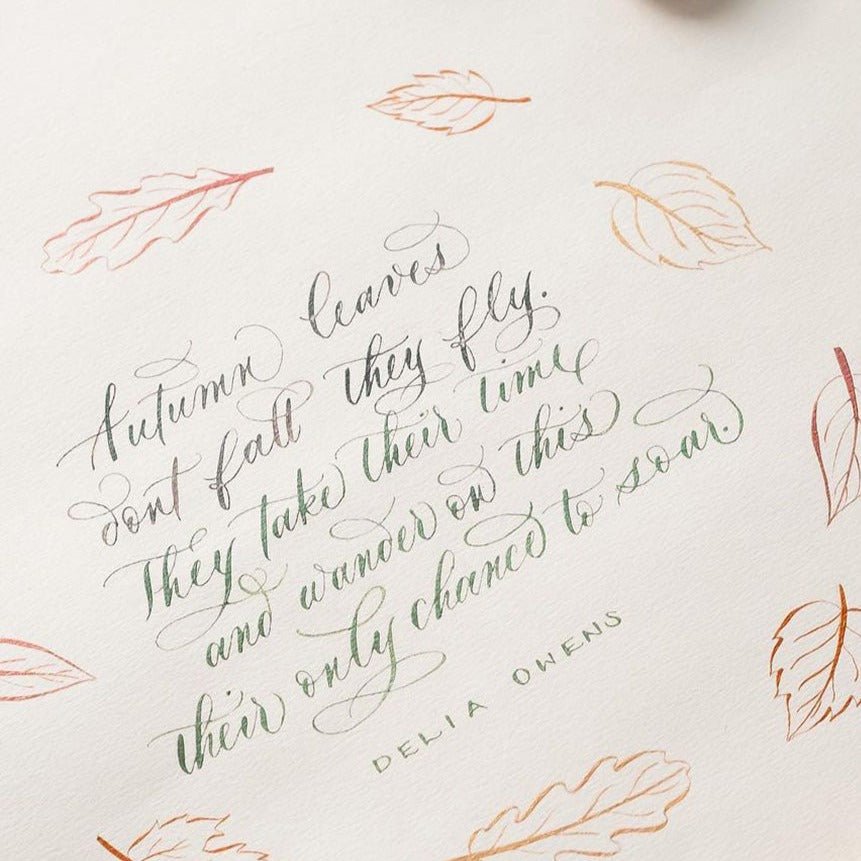 Autumn leaves
dont fall they fly.
They take their time
and wander on this
their only chance to soar.
DELIA OWENS